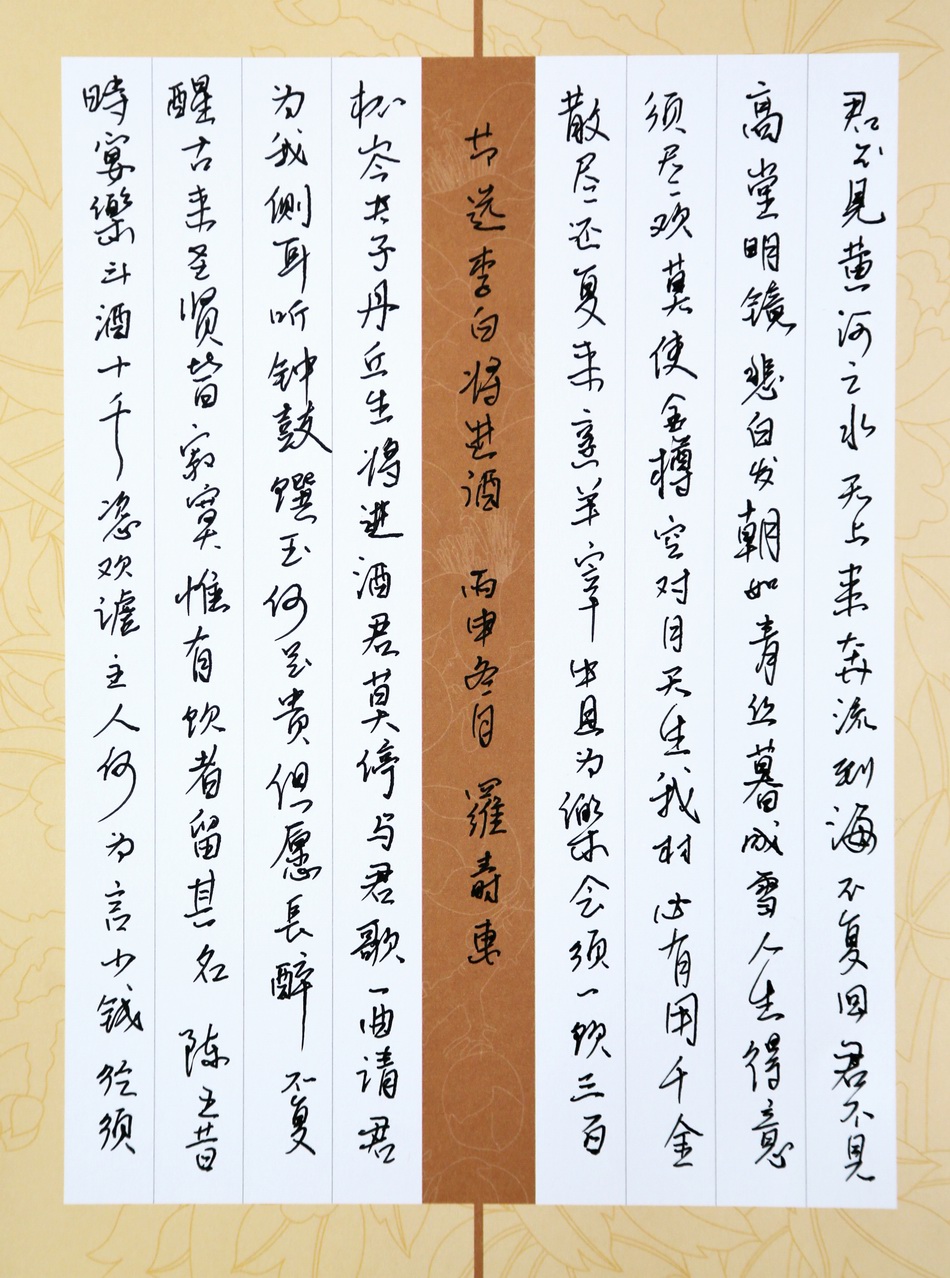 君不見黄河之水天上来奔流到海不复回君不見
高堂明镜悲白发朝如青丝暮成雪人生得意
须尽欢莫使金樽空对月天生我材必有用千金
散尽还复来烹羊宰牛且为樂会须一饮三百
节选李白将进酒 丙申冬日 羅寿
杯岑夫子丹丘生将进酒君莫停与君歌一曲请君
为我侧耳听钟鼓馔玉何足贵但愿長醉不复
醒古来圣贤皆寂寞惟有饮者留其名陈王昔
時宴樂斗酒十千恣欢谑主人何为言少钱径须